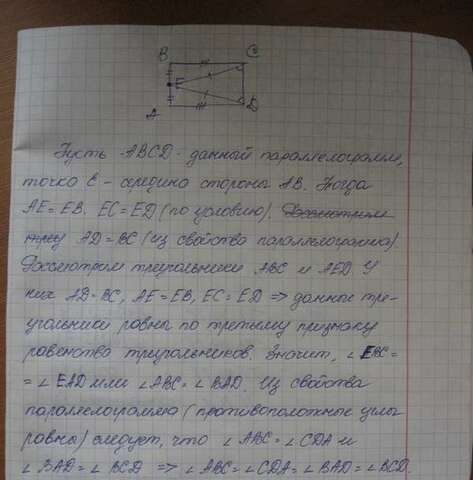 B C
E
A D
Пусть ABCD - данный параллелограмм,
точка E - середина стороны AB. Тогда
AE = EB. EC = ED (по условию).
AD = BC (из свойства параллелограмма)
Рассмотрим треугольники ABC и AED. У
них AD = BC, AE = EB, EC = ED => данные тре-
угольники равны по третьему признаку
равенства треугольников. Значит, ∠ EBC =
= ∠ EAD или ∠ ABC = ∠ BAD. Из свойства
параллелограмма (противоположные углы
равны) следует, что ∠ ABC = ∠ CDA и
∠ BAD = ∠ BCD => ∠ ABC = ∠ CDA = ∠ BAD = ∠ BCD.